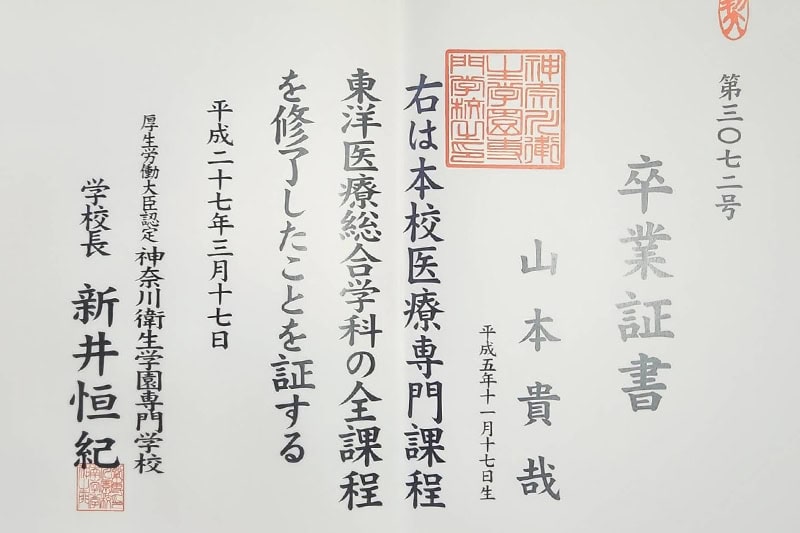 第三〇七二号
卒業証書
山本貴哉
平成五年十一月十七日生
右は本校医療専門課程
東洋医療総合学科の全課程
を修了したことを証する
平成二十七年三月十七日
厚生労働大臣認定 神奈川衛生学園専門学校
学校長 新井恒紀